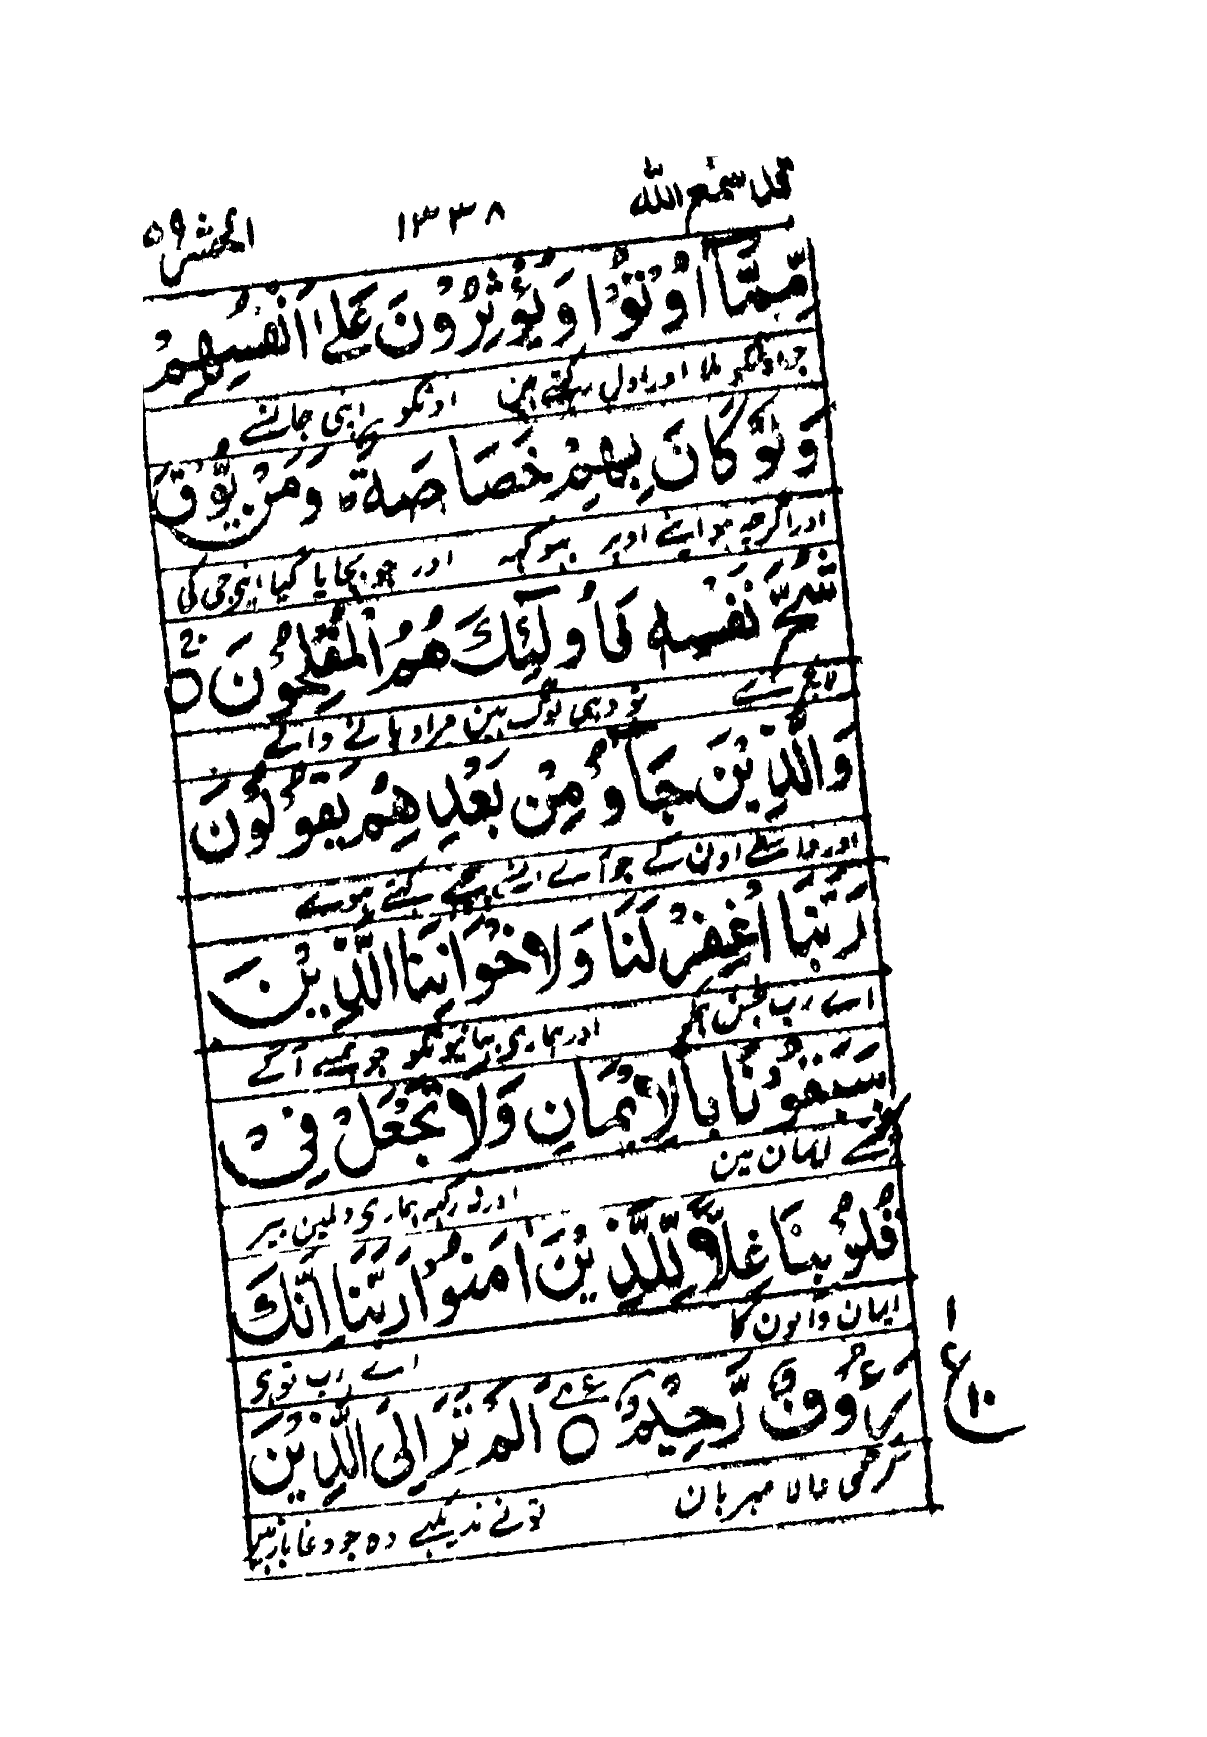 قد سمع الله ١٣٣٨ الحشر ٥٩
مِّمَّآ اُوْتُوْا وَيُؤْثِرُوْنَ عَلٰٓى اَنْفُسِهِمْ
جو اونکو ملا اور اول رکہتے ہین اونکو اپنی جان سے
وَلَوْ كَانَ بِهِمْ خَصَاصَةٌ ۭ وَمَنْ يُّوْقَ
اور اگرچہ ہو اپنے اوپر بہوکہہ اور جو بچایا گیا اپنی جی کی
شُحَّ نَفْسِهٖ فَاُولٰٓئِكَ هُمُ الْمُفْلِحُوْنَ ۝
لالچ سے تو وہی لوگ ہین مراد پانے والے
وَالَّذِيْنَ جَآءُوْ مِنْ بَعْدِهِمْ يَقُوْلُوْنَ
اور واسطے اون کے جو آے اونسے پیچہے کہتے ہوے
رَبَّنَا اغْفِرْ لَنَا وَلِاِخْوَانِنَا الَّذِيْنَ
اے رب بخش ہمکو اور ہماری بہائیونکو جو ہمسے آگے
سَبَقُوْنَا بِالْاِيْمَانِ وَلَا تَجْعَلْ فِيْ
پہنچے ایمان مین اور نہ رکہہ ہماری دلمین بیر
قُلُوْبِنَا غِلًّا لِّلَّذِيْنَ اٰمَنُوْا رَبَّنَآ اِنَّكَ
ایمان والون کا اے رب توہی
رَءُوْفٌ رَّحِيْمٌ ۝ اَلَمْ تَرَ اِلَى الَّذِيْنَ
نرمی والا مہربان تونے ندیکہے وہ جو دغاباز ہین
١
ع
١٠